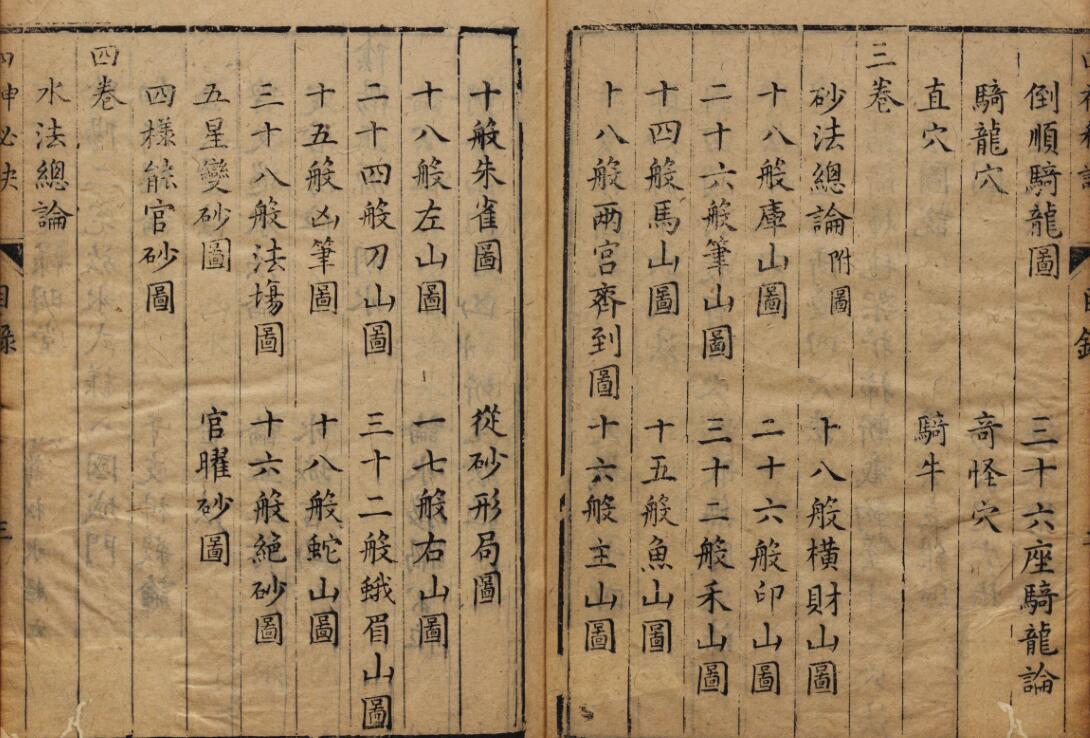 倒順騎龍圖 三十六座騎龍論
騎龍穴 奇怪穴
直穴 騎牛
三卷
砂法總論附圖 十八般橫財山圖
十八般庫山圖 二十六般印山圖
二十六般筆山圖 三十二般禾山圖
十四般馬山圖 十五般魚山圖
十八般兩宮齊到圖 十六般主山圖
十般朱雀圖 從砂形局圖
十八般左山圖 一七般右山圖
二十四般刀山圖 三十二般蛾眉山圖
十五般凶筆圖 十八般蛇山圖
三十八般法塲圖 十六般絕砂圖
五星變砂圖 官曜砂圖
四樣能官砂圖
四卷
水法總論
神必决 目錄 三